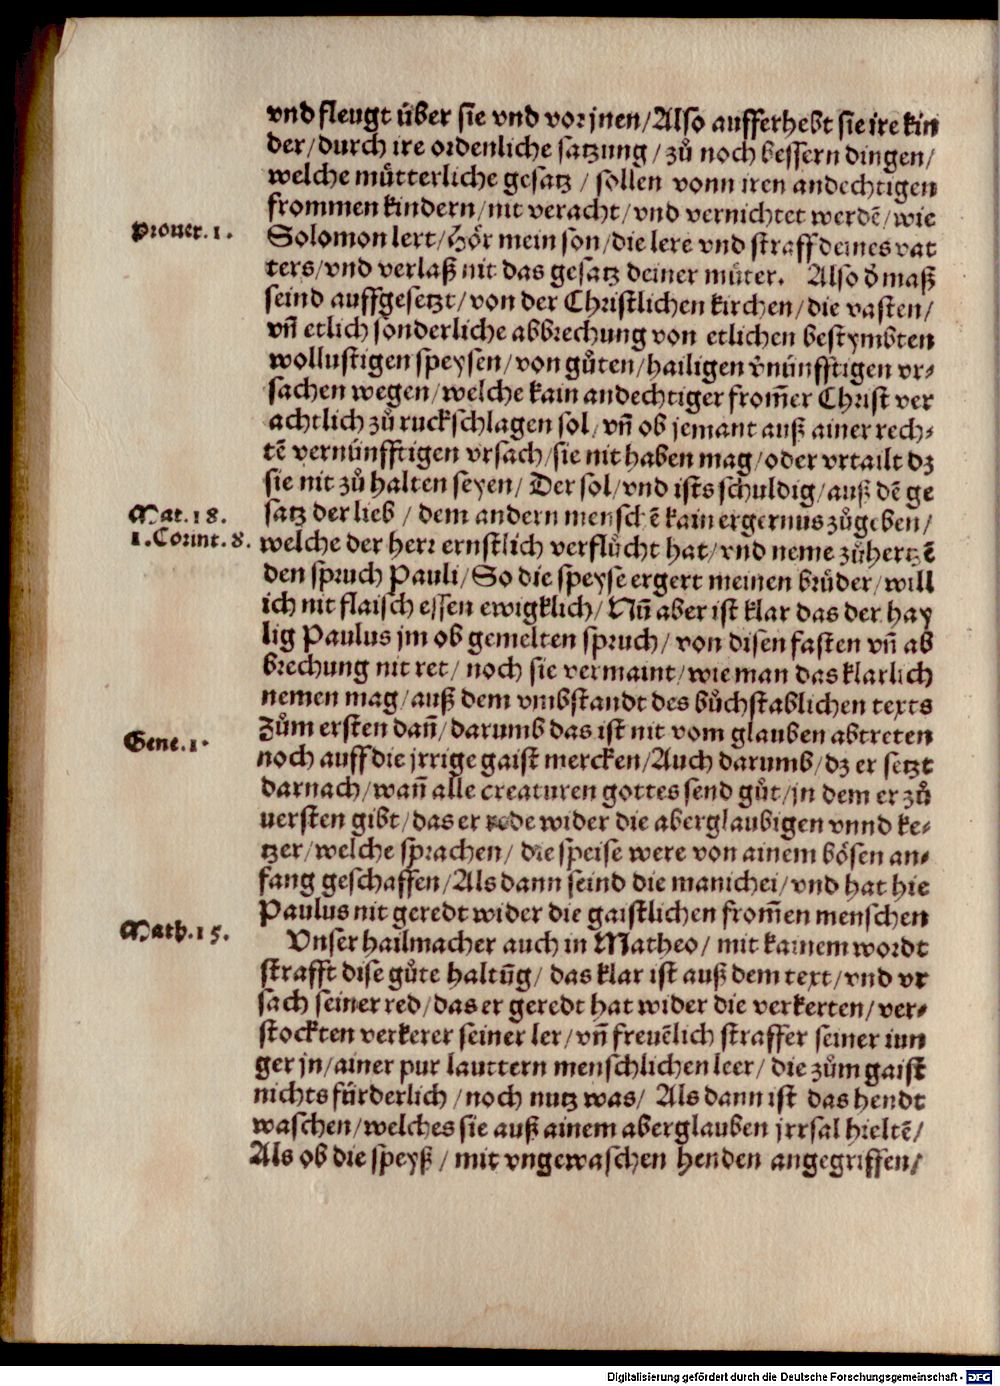 vnd fleugt über sie vnd vor jnen/Also aufferhebt sie ire kin
der/durch ire ordenliche satzung/zů noch bessern dingen/
welche můtterliche gesatz/sollen vonn iren andechtigen
frommen kindern/nit veracht/vnd vernichtet werdē/wie
Prouer.1.
Solomon lert/Hör mein son/die lere vnd straff deines vat
ters/vnd verlaß nit das gesatz deiner můter. Also d̓ maß
seind auffgesetzt/von der Christlichen kirchen/die vasten/
vñ etlich sonderliche abbrechung von etlichen bestymbten
wollustigen speysen/von gůten/hailigen v̓nünfftigen vr⸗
sachen wegen/welche kain andechtiger from̃er Christ ver
achtlich zů ruckschlagen sol/vñ ob jemant auß ainer rech⸗
tē vernünfftigen vrsach/sie nit haben mag/oder vrtailt dz
sie nit zů halten seyen/Der sol/vnd ists schuldig/auß dē ge
Mat.18.
satz der lieb/dem andern menschē kain ergernus zůgeben/
1.Corint.8.
welche der herr ernstlich verflůcht hat/vnd neme zůhertzē
den spruch Pauli/So die speyse ergert meinen brůder/will
ich nit flaisch essen ewigklich/Nũ aber ist klar das der hay
lig Paulus jm ob gemelten spruch/von disen fasten vñ ab
brechung nit ret/noch sie vermaint/wie man das klarlich
nemen mag/auß dem vmbstandt des bůchstablichen texts
Zům ersten dañ/darumb das ist nit vom glauben abtreten
Gene.1.
noch auff die jrrige gaist mercken/Auch darumb/dz er setzt
darnach/wañ alle creaturen gottes send gůt/in dem er zů
uersten gibt/das er rede wider die aberglaubigen vnnd ke⸗
tzer/welche sprachen/die speise were von ainem bösen an⸗
fang geschaffen/Als dann seind die manichei/vnd hat hie
Paulus nit geredt wider die gaistlichen from̃en menschen
Math.15.
Vnser hailmacher auch in Matheo/mit kainem wordt
strafft dise gůte haltũg/das klar ist auß dem text/vnd vr
sach seiner red/das er geredt hat wider die verkerten/ver⸗
stockten verkerer seiner ler/vñ freuēlich straffer seiner iun
ger jn/ainer pur lauttern menschlichen leer/die zům gaist
nichts fürderlich/noch nutz was/Als dann ist das hendt
waschen/welches sie auß ainem aberglauben jrrsal hieltē/
Als ob die speyß/mit vngewaschen henden angegriffen/
Digitalisierung gefördert durch die Deutsche Forschungsgemeinschaft - DFG